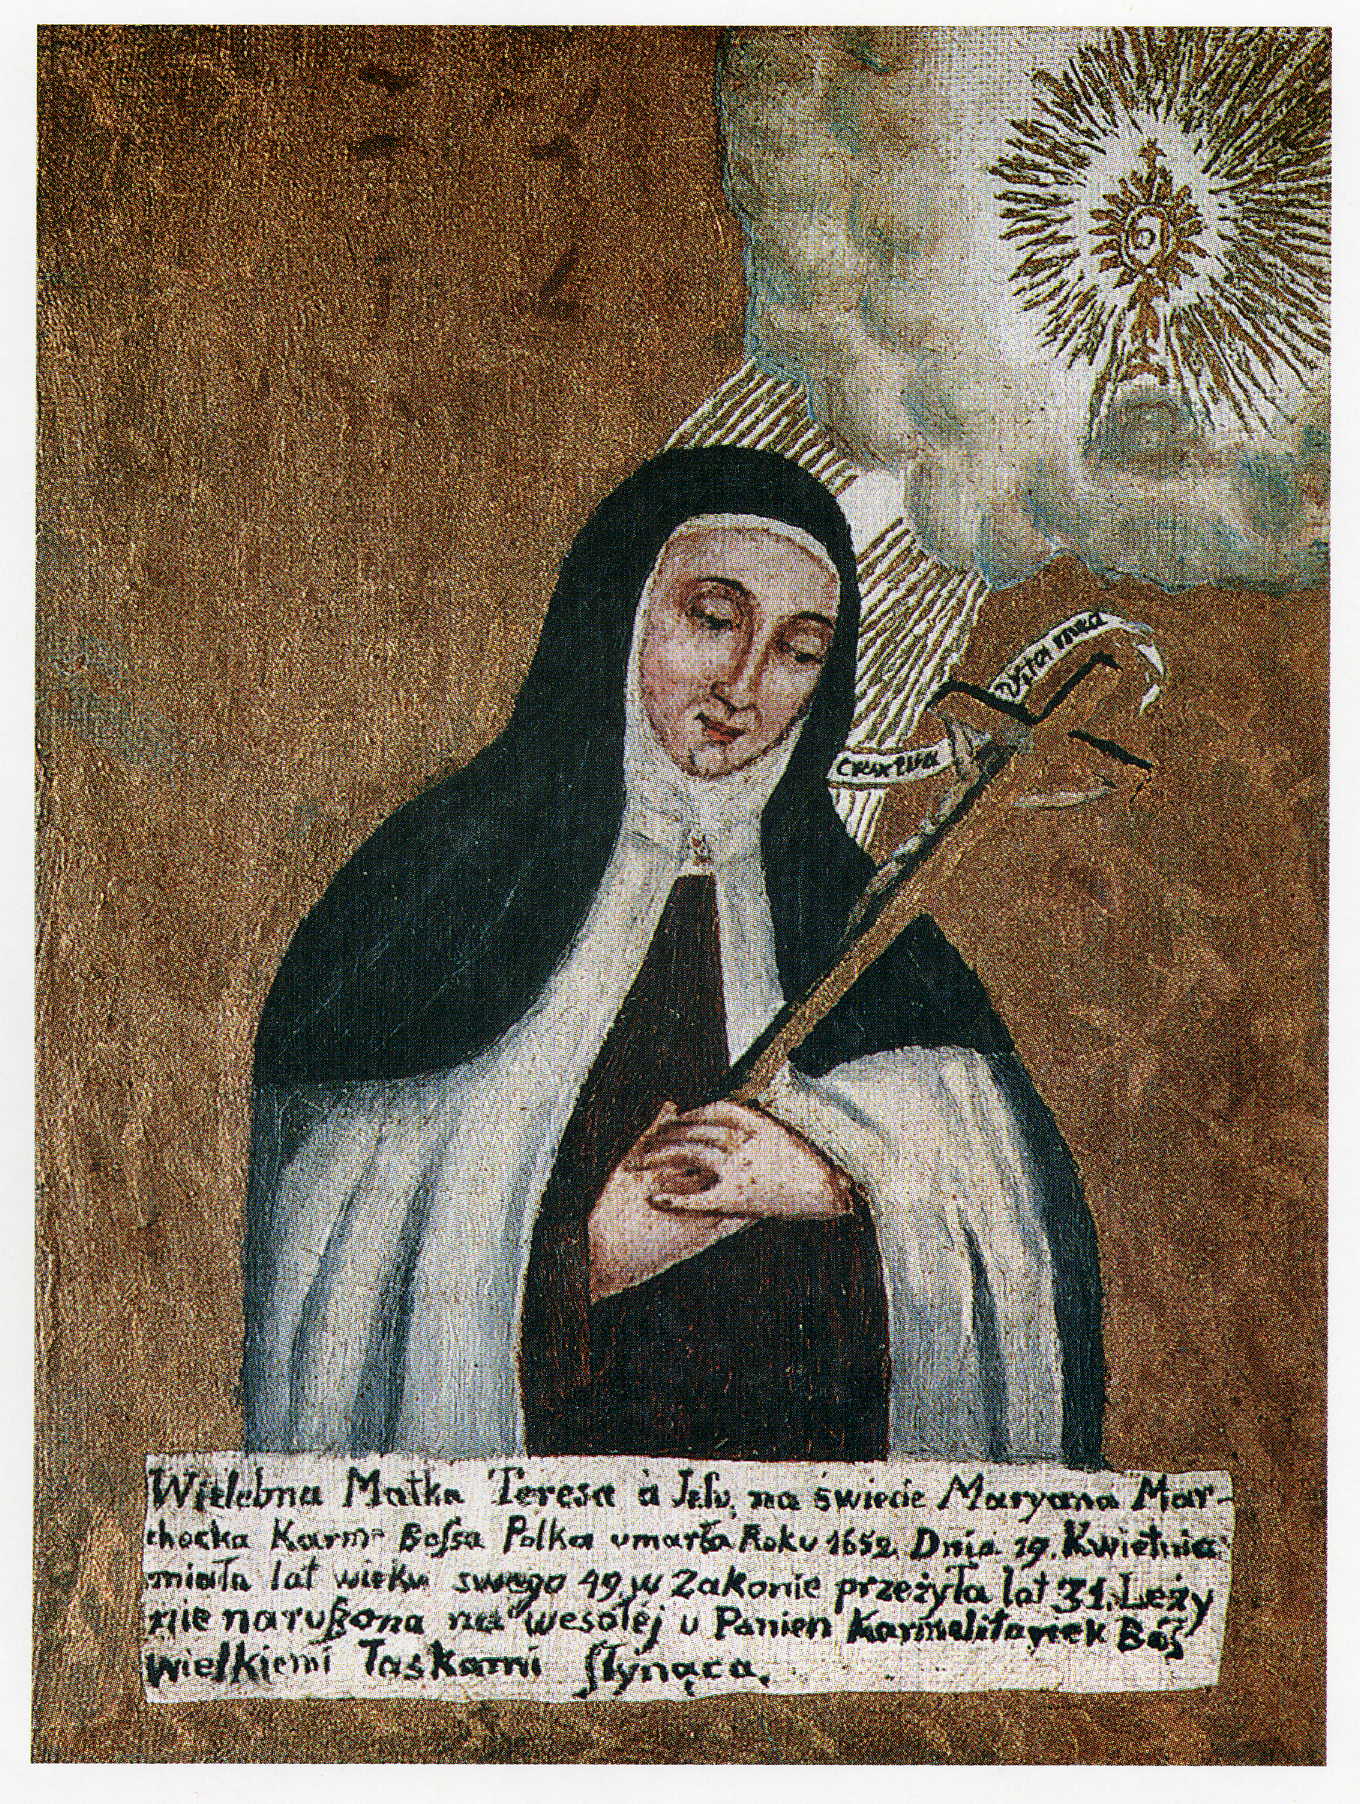 Vita mea
Crux tua
Wielebna Matka Teresa á Jesu, na świecie Maryana Mar-
chocka Karm: Bossa Polka umarła Roku 1652 Dnia 19. Kwietnia
miała lat wieku swego 49, w Zakonie przeżyła lat 31. Leży
nie narußona na wesołej u Panien Karmelitanek Boß
wielkiemi łaskami słynąca.